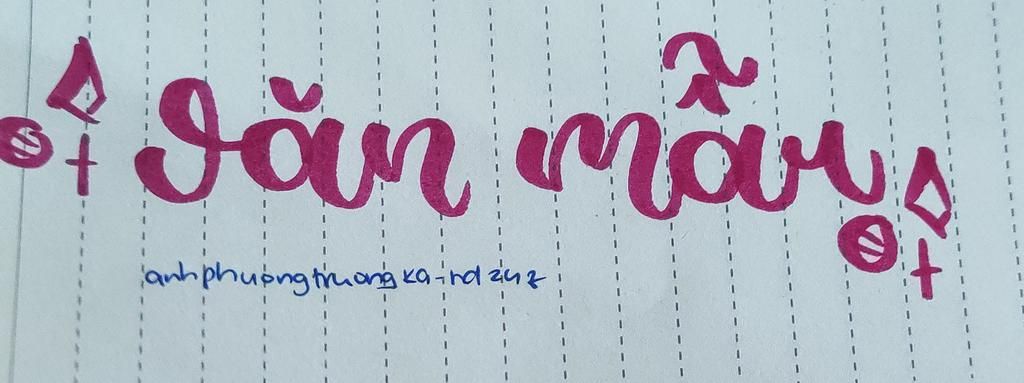 văn mẫu
anhphuongtruongka-rd2u2